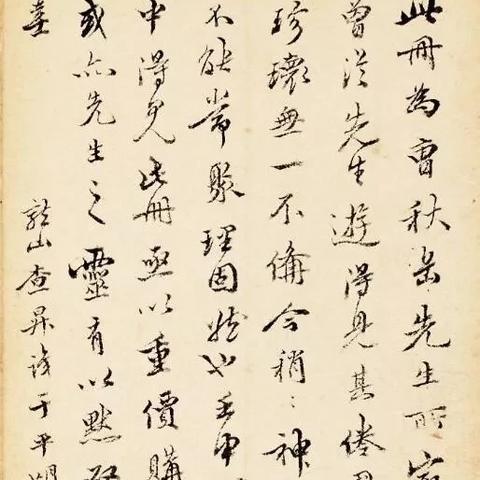 此冊為曹秋岳先生所
曾從先生遊得見其倦
珍瓌無一不備今稍〻神
不能常聚理固然也壬申
中得見此冊亟以重價購
或亦先生之靈有以默
臺
龍山查昇識于平湖